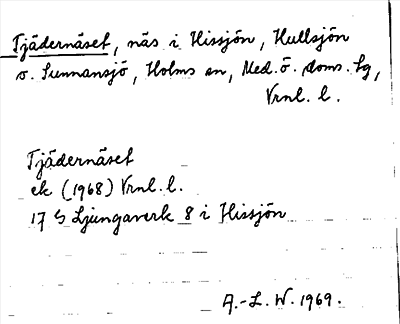 Tjädernäset, näs i Hissjön, Hullsjön
o. Sunnansjö, Holms sn, Med. ö. doms. sg,
Vrnl. l.
Tjädernäset
ek (1968) Vrnl. l.
17 G Ljungaverk 8 i Hissjön
A.-L. W. 1969.